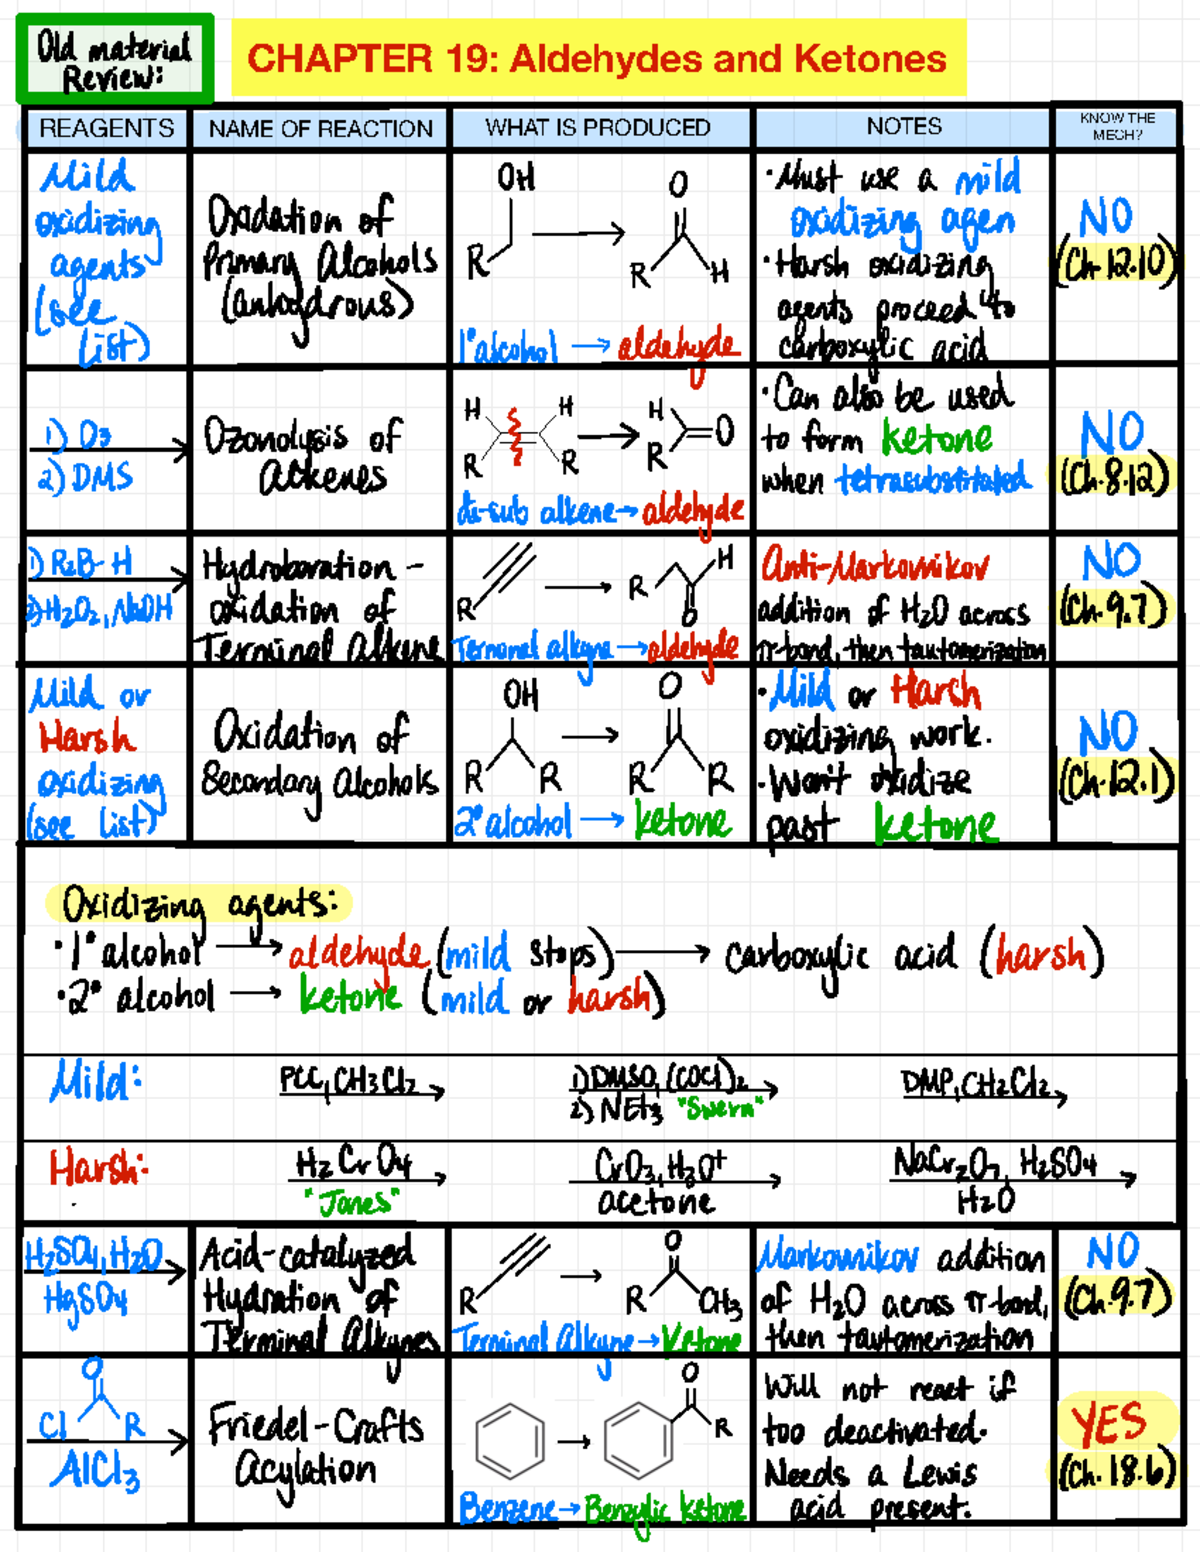 Old material
Review:
CHAPTER 19: Aldehydes and Ketones
REAGENTS
NAME OF REACTION
WHAT IS PRODUCED
NOTES
KNOW THE
MECH?
Mild
oxidizing
agents
(see
list)
Oxidation of
Primary Alcohols
(anhydrous)
OH
R
O
R
H
1° alcohol → aldehyde
• Must use a mild
oxidizing agen
• Harsh oxidizing
agents proceed to
carboxylic acid
NO
(Ch 12.10)
1) O3
2) DMS
Ozonolysis of
alkenes
H
H
R
R
H
R
O
di-sub alkene → aldehyde
• Can also be used
to form ketone
when tetrasubstituted
NO
(Ch. 8.12)
1) R2B-H
2) H2O2, NaOH
Hydroboration -
oxidation of
Terminal Alkyne
R
R
H
O
Terminal alkyne → aldehyde
Anti-Markovnikov
addition of H2O across
π-bond, then tautomerization
NO
(Ch. 9.7)
Mild or
Harsh
oxidizing
(see list)
Oxidation of
Secondary Alcohols
OH
R
R
O
R
R
2° alcohol → ketone
• Mild or Harsh
oxidizing work.
• Won't oxidize
past ketone
NO
(Ch. 12.1)
Oxidizing agents:
• 1° alcohol → aldehyde (mild stops) → carboxylic acid (harsh)
• 2° alcohol → ketone (mild or harsh)
Mild:
PCC, CH3Cl2
1) DMSO, (COCl)2
2) NEt3 "Swern"
DMP, CH2Cl2
Harsh:
H2CrO4
"Jones"
CrO3, H3O+
acetone
NaCr2O7, H2SO4
H2O
H2SO4, H2O
HgSO4
Acid-catalyzed
Hydration of
Terminal Alkynes
R
O
R
CH3
Terminal Alkyne → Ketone
Markovnikov addition
of H2O across π-bond,
then tautomerization
NO
(Ch. 9.7)
O
Cl
R
AlCl3
Friedel-Crafts
Acylation
O
R
Benzene → Benzylic ketone
Will not react if
too deactivated.
Needs a Lewis
acid present.
YES
(Ch. 18.6)